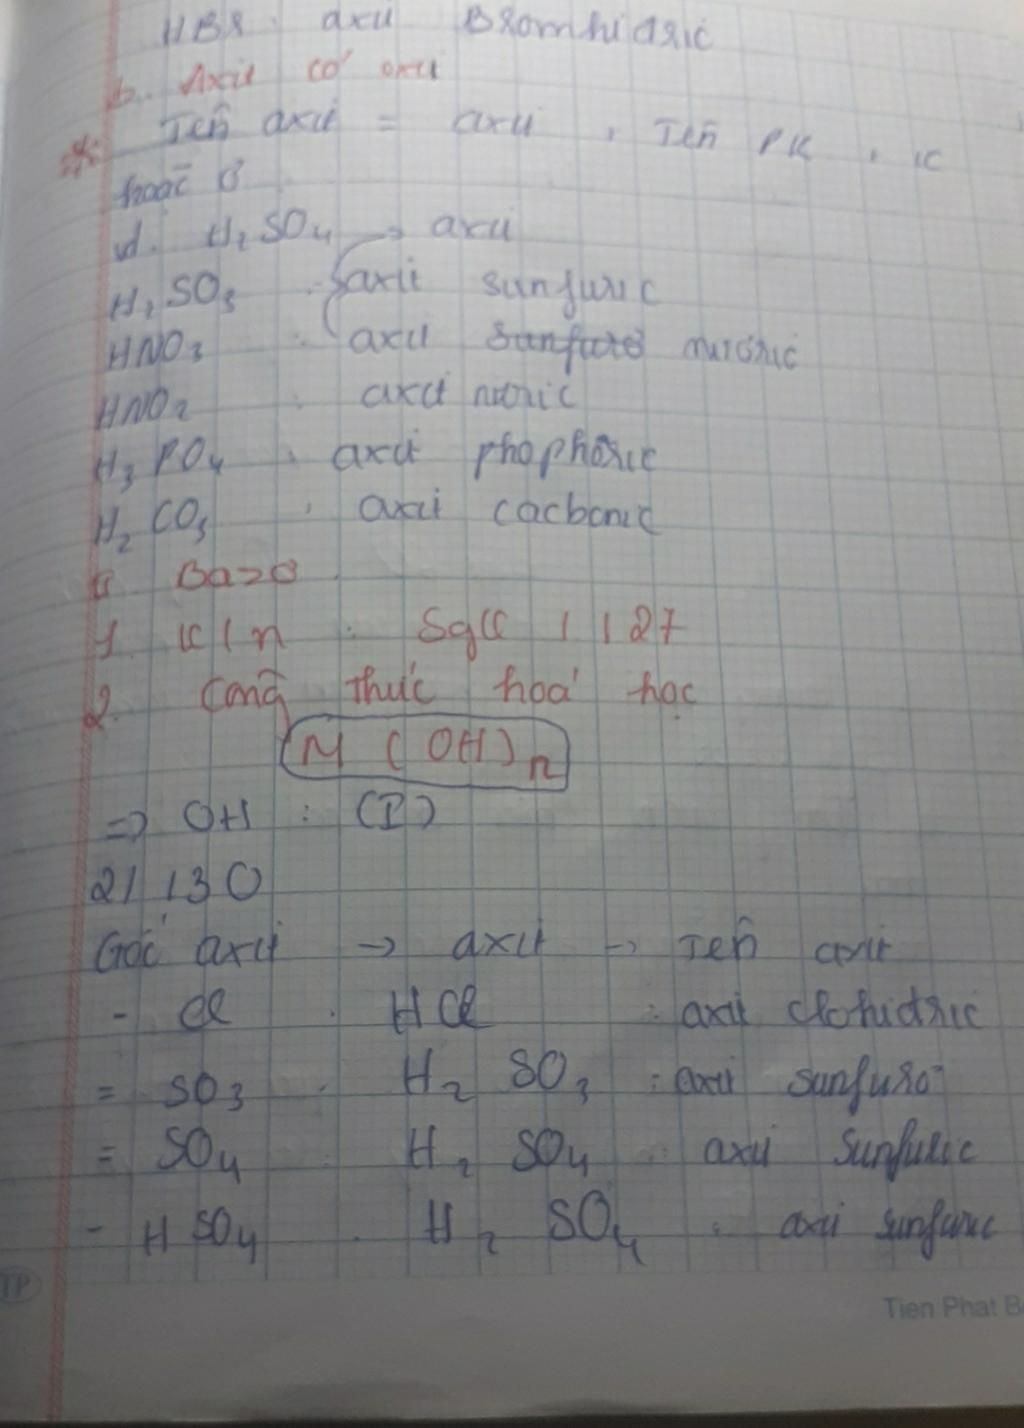 HBr : axit Bromhidric
b. Axit có oxi
* Tên axit = axit + Tên PK + ic
hoặc ơ
vd: H₂SO₄ → axit
H₂SO₃ : axit sunfuric
HNO₃ : axit sunfurơ nitơric
HNO₂ : axit nitric
H₃PO₄ : axit phophoric
H₂CO₃ : axit cacbonic
II Bazơ
1. K/n : Sgk / 127
2. Công thức hoá học
M(OH)n
=> OH : (I)
2/ 130
Gốc axit -> axit -> Tên axit
- Cl : HCl : axit clohidric
= SO₃ : H₂SO₃ : axit sunfurơ
= SO₄ : H₂SO₄ : axit sunfuric
- HSO₄ : H₂SO₄ : axit sunfuric
TP
Tien Phat